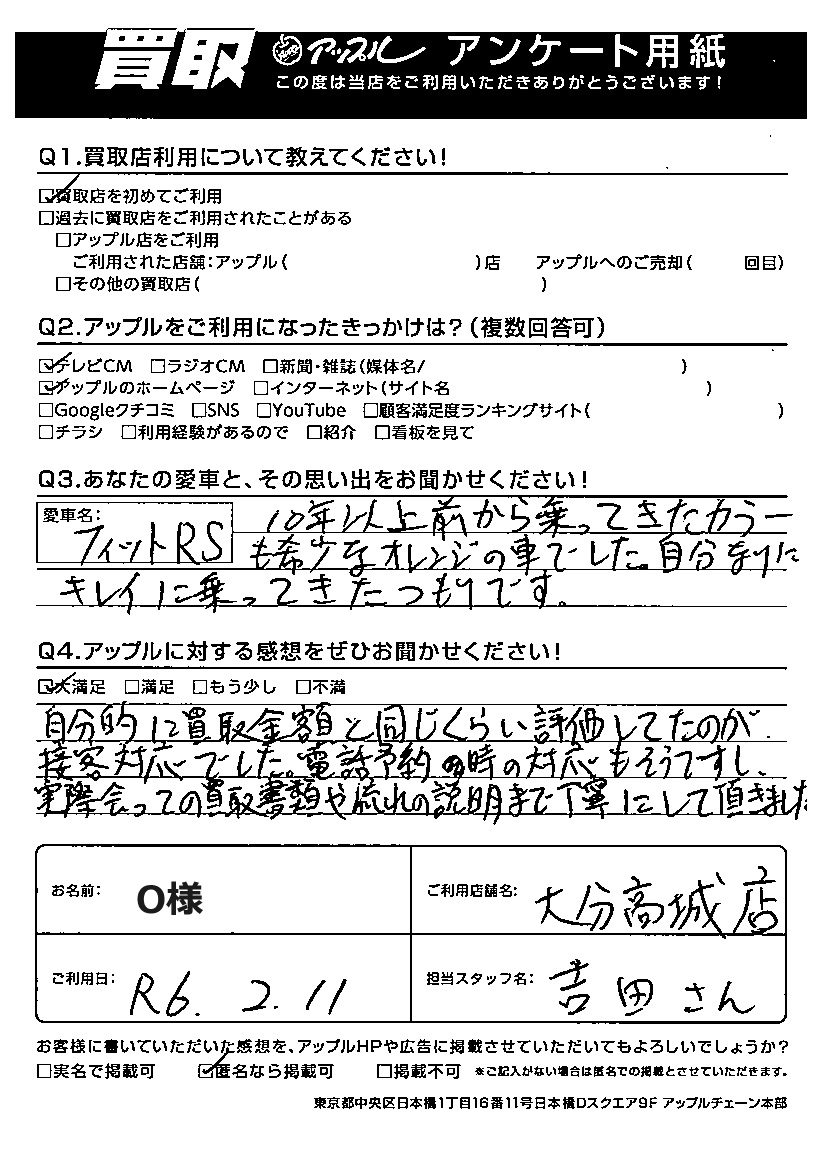 買取 アップル アンケート用紙
この度は当店をご利用いただきありがとうございます!
Q1.買取店利用について教えてください!
☑買取店を初めてご利用
□過去に買取店をご利用されたことがある
□アップル店をご利用
ご利用された店舗:アップル( )店 アップルへのご売却( 回目)
□その他の買取店( )
Q2.アップルをご利用になったきっかけは?(複数回答可)
☑テレビCM □ラジオCM □新聞・雑誌(媒体名/ )
☑アップルのホームページ □インターネット(サイト名 )
□Googleクチコミ □SNS □YouTube □顧客満足度ランキングサイト( )
□チラシ □利用経験があるので □紹介 □看板を見て
Q3.あなたの愛車と、その思い出をお聞かせください!
愛車名:
フィットRS 10年以上前から乗ってきたカラー
も希少なオレンジの車でした。自分なりに
キレイに乗ってきたつもりです。
Q4.アップルに対する感想をぜひお聞かせください!
☑大満足 □満足 □もう少し □不満
自分的に買取金額と同じくらい評価してたのが
接客対応でした。電話予約の時の対応もそうですし、
実際会っての買取書類や流れの説明まで丁寧にして頂きました
お名前: O様 ご利用店舗名: 大分高城店
ご利用日: R6. 2. 11 担当スタッフ名: 吉田さん
お客様に書いていただいた感想を、アップルHPや広告に掲載させていただいてもよろしいでしょうか?
□実名で掲載可 ☑匿名なら掲載可 □掲載不可 ※ご記入がない場合は匿名での掲載とさせていただきます。
東京都中央区日本橋1丁目16番11号日本橋Dスクエア9F アップルチェーン本部